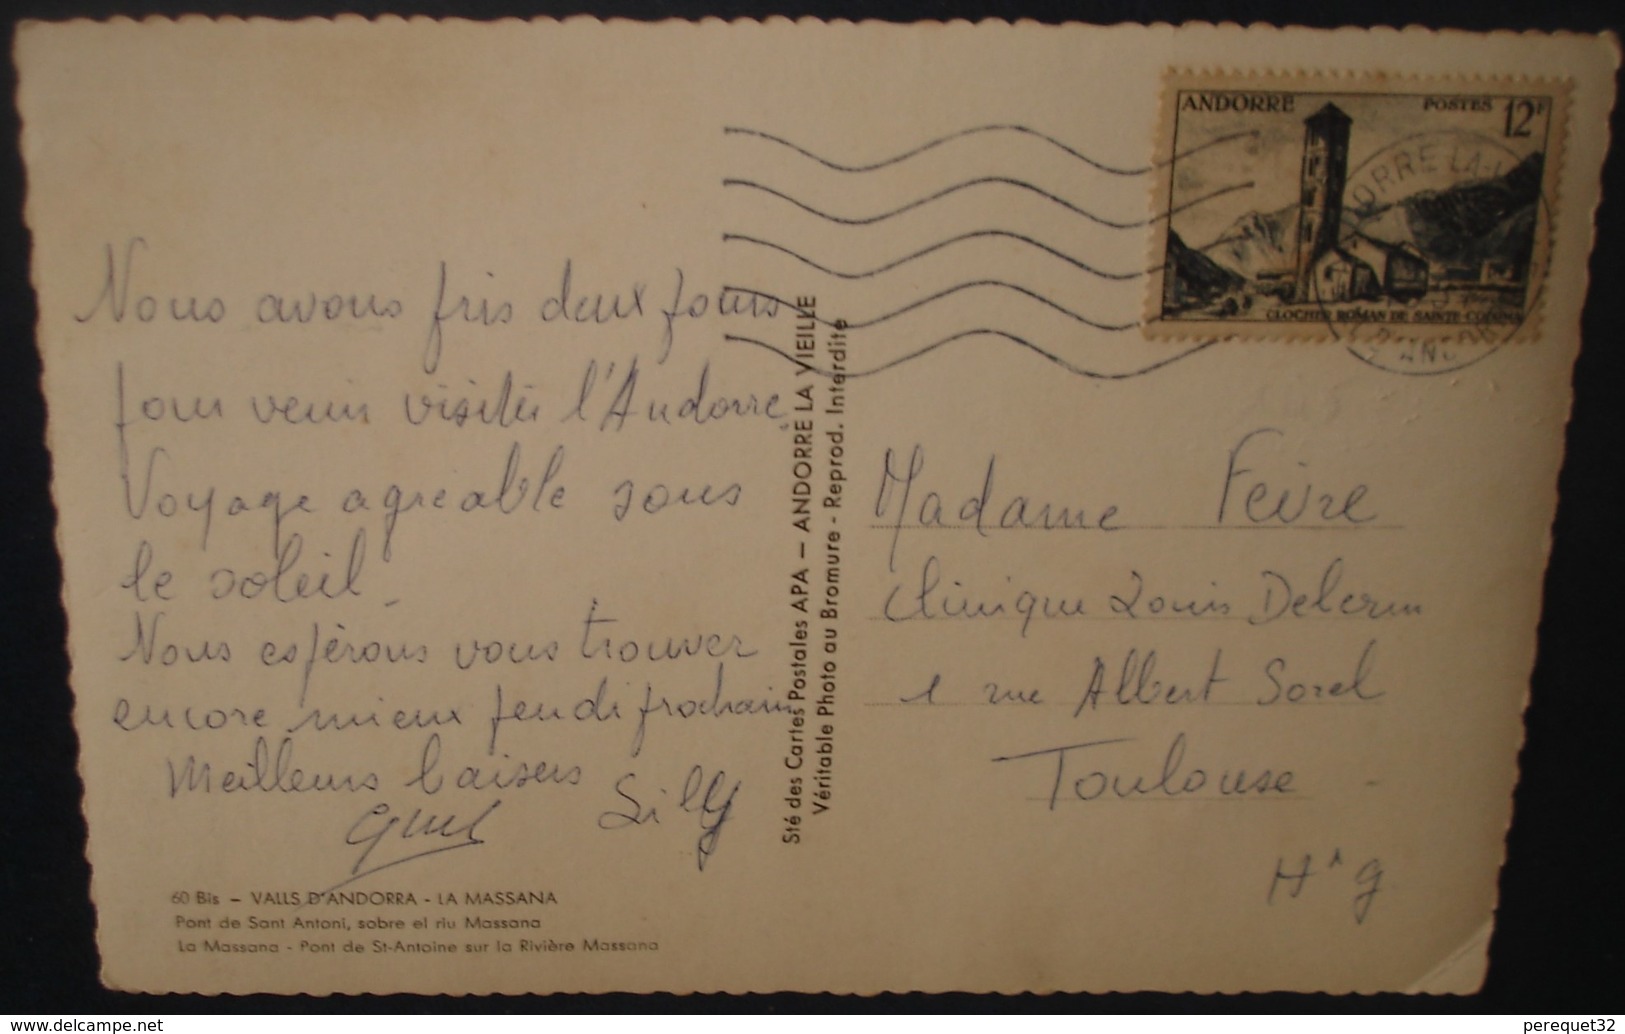 Nous avons pris deux jours
pour venir visiter l'Andorre.
Voyage agréable sous
le soleil -
Nous espérons vous trouver
encore mieux jeudi prochain
Meilleurs baisers
Lily
60 Bis – VALLS D'ANDORRA - LA MASSANA
Pont de Sant Antoni, sobre el riu Massana
La Massana - Pont de St-Antoine sur la Rivière Massana
Sté des Cartes Postales APA – ANDORRE LA VIEILLE
Véritable Photo au Bromure - Reprod. Interdite
ANDORRE POSTES 12F
CLOCHER ROMAN DE SAINTE-COLOMA
Madame Feivre
Clinique Louis Delerm
1 rue Albert Sorel
Toulouse -
Hte g
delcampe.net
perequet32